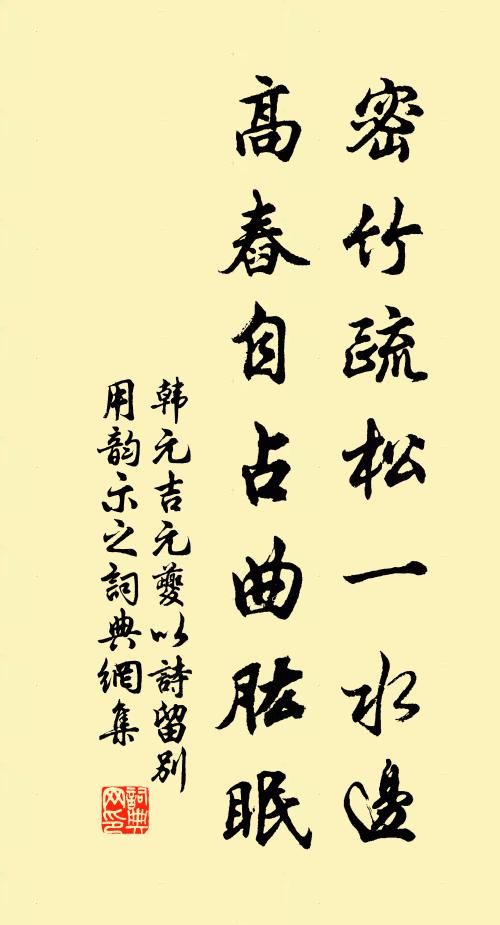 密竹疏松一水邊
高舂自占曲肱眠
韩元吉元夔以詩留别
用韵示之詞典網集
詞典网印